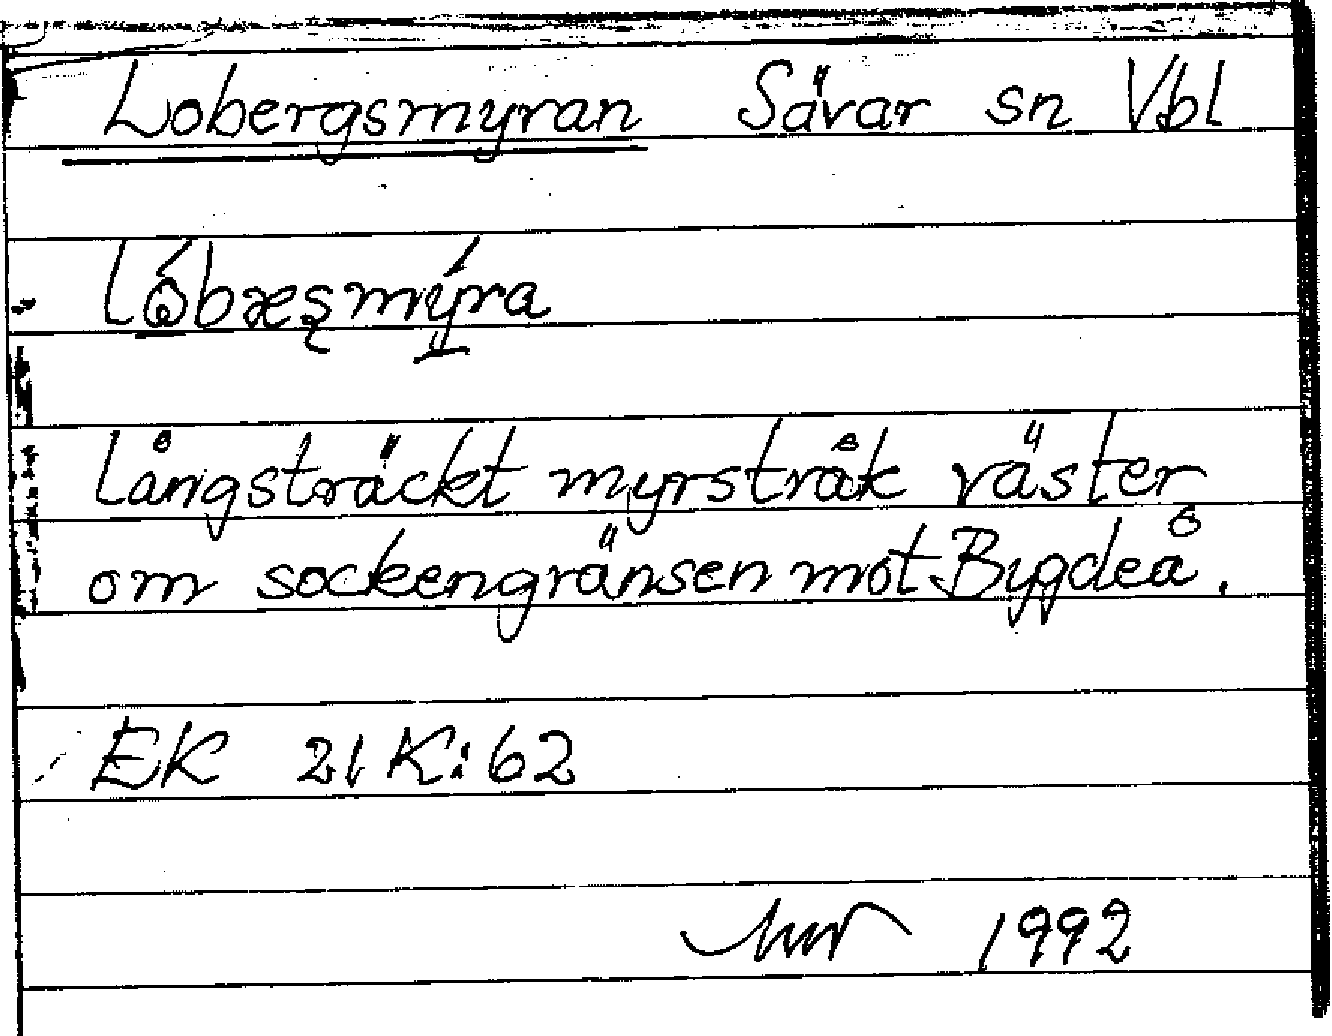 Lobergsmyran Sävar sn Vbl
långsträckt myrstråk väster
om sockengränsen mot Bygdeå.
EK 21K:62
1992